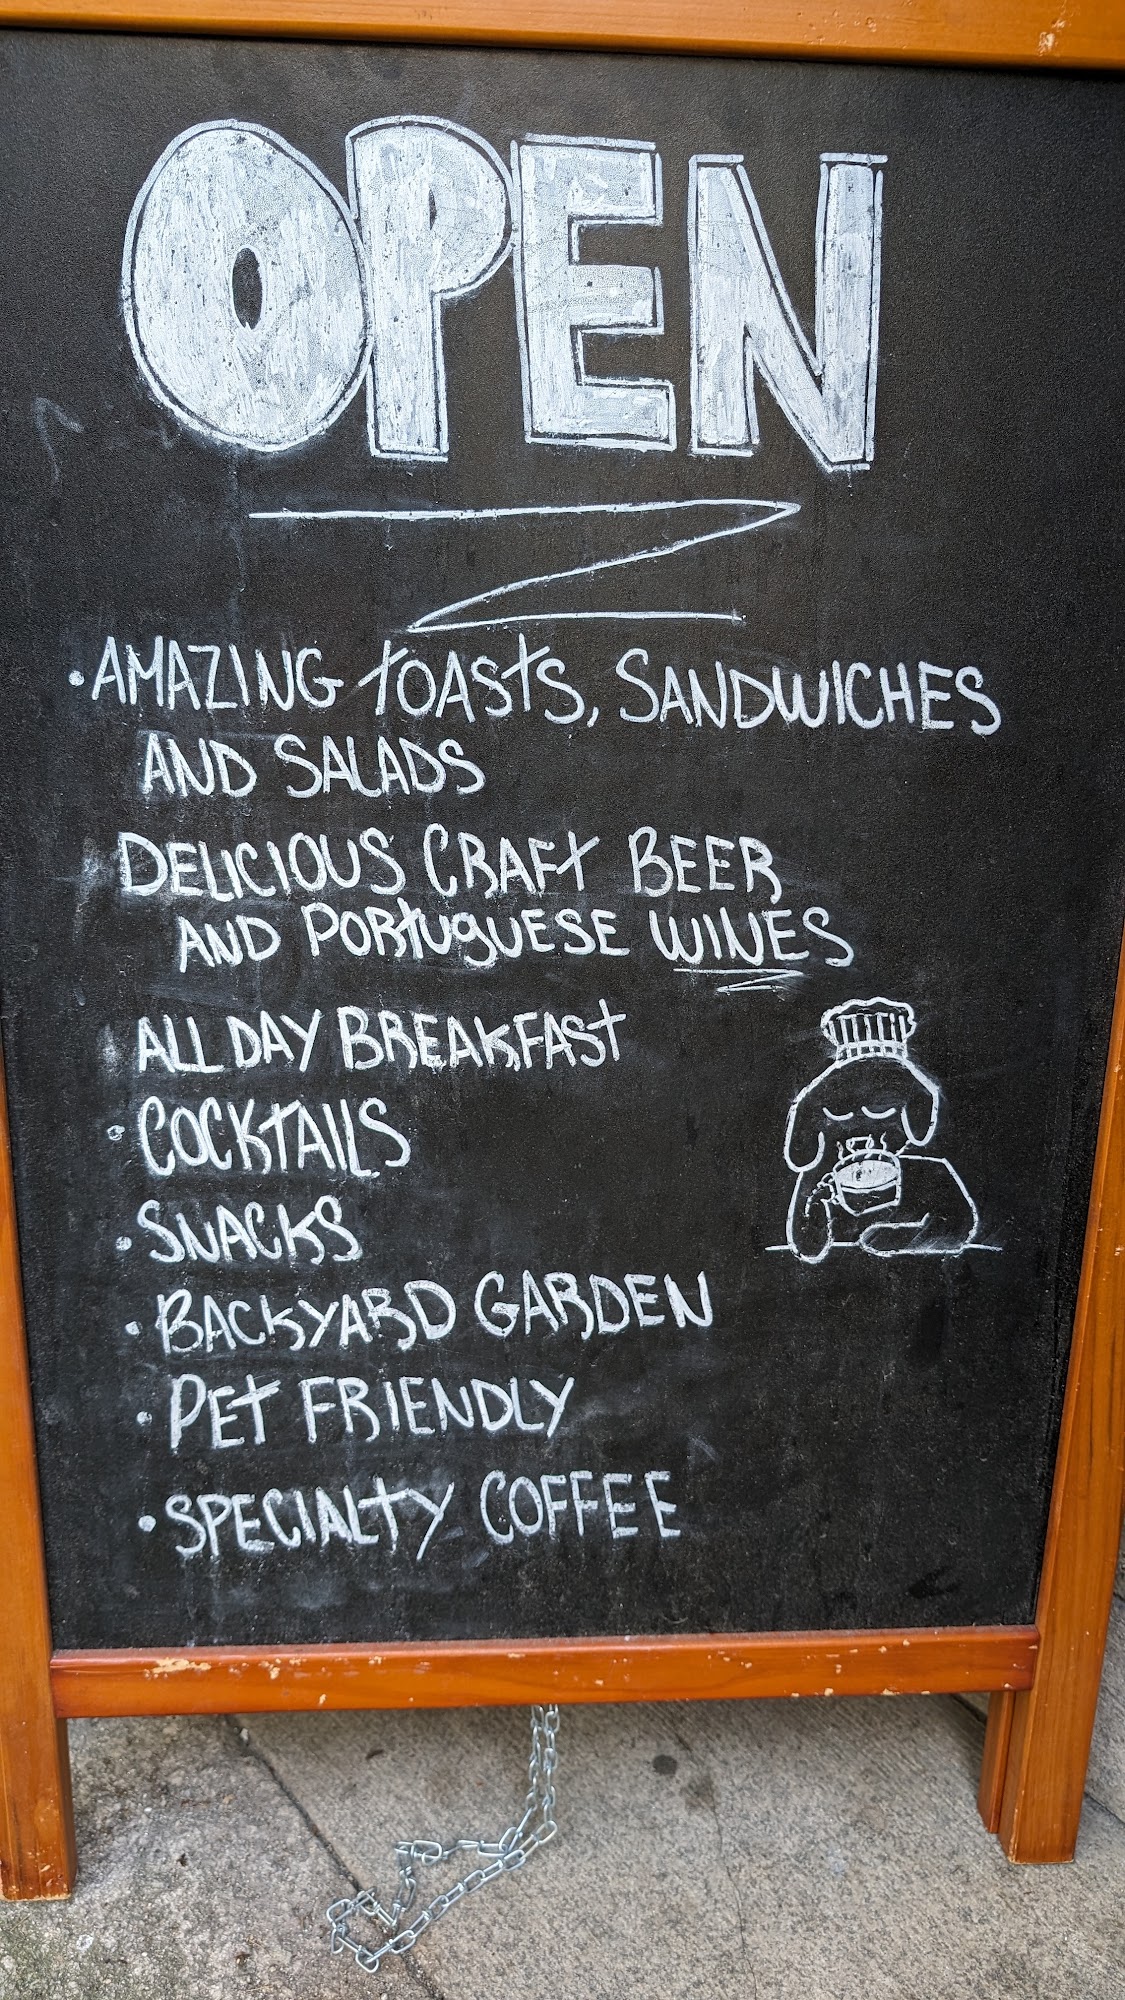 OPEN
• AMAZING TOASTS, SANDWICHES
AND SALADS
DELICIOUS CRAFT BEER
AND PORTUGUESE WINES
ALL DAY BREAKFAST
• COCKTAILS
• SNACKS
• BACKYARD GARDEN
• PET FRIENDLY
• SPECIALTY COFFEE